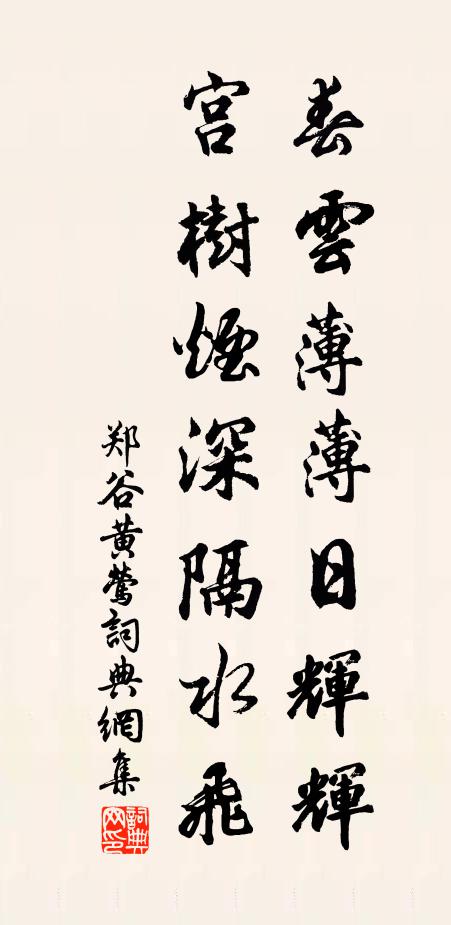 春雲薄薄日輝輝
宮樹煙深隔水飛
郑谷黄鶯詞典網集
詞典网印